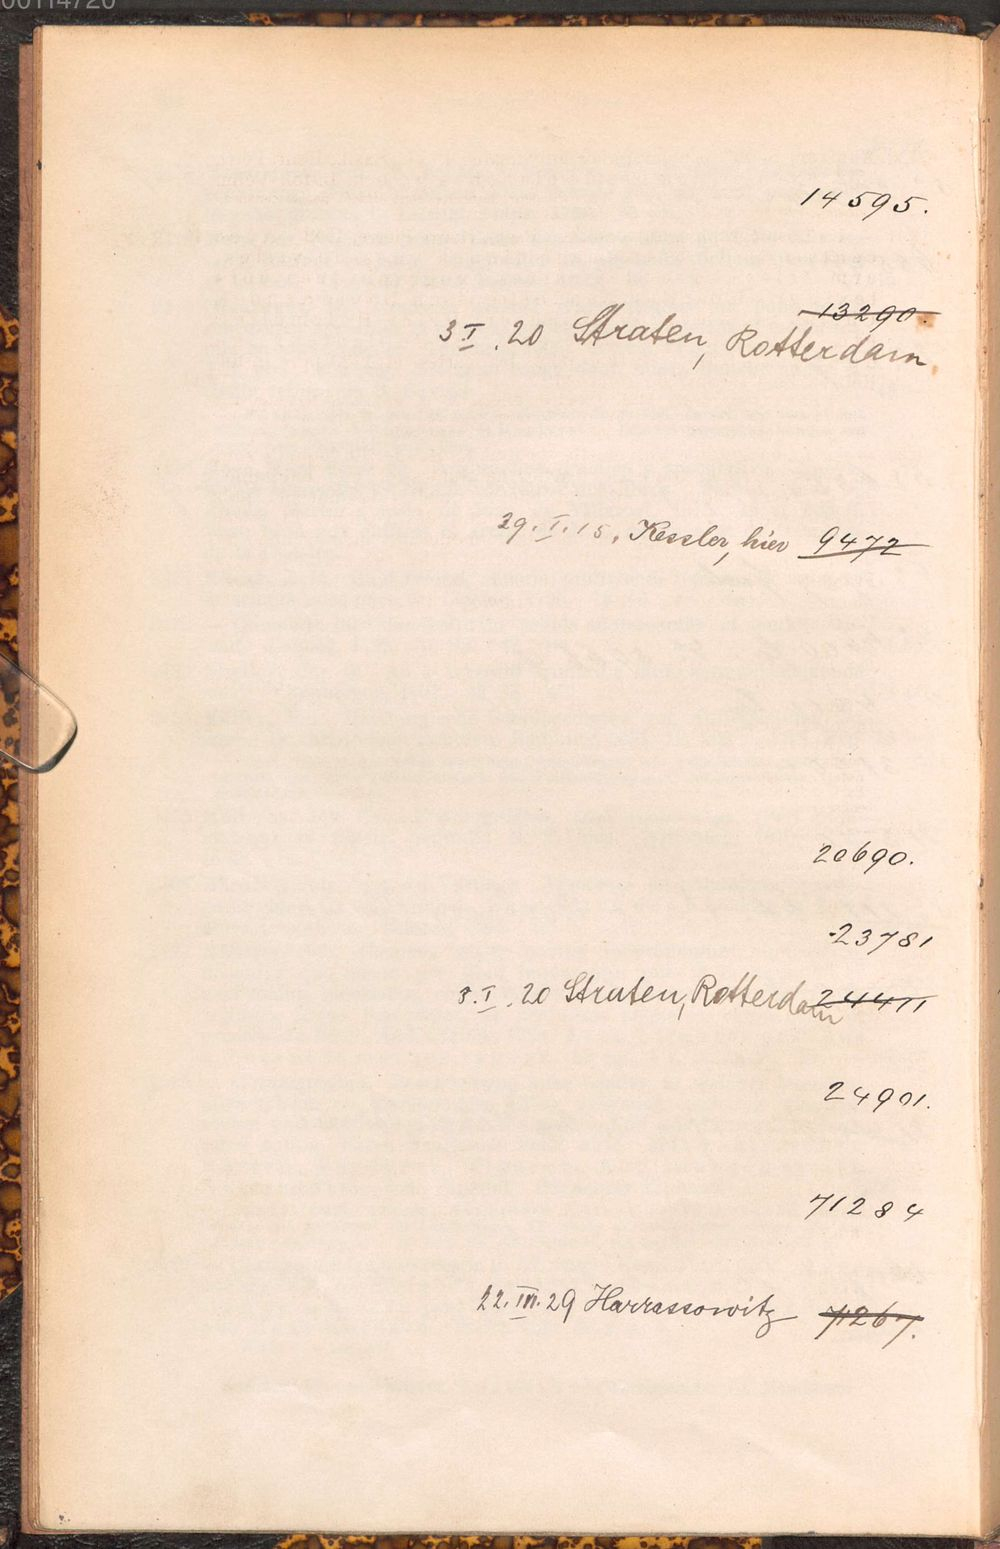 00114720
14595.
13290.
3 I. 20 Straten, Rotterdam
29. I. 15, Kessler, hier 9472
20690.
23781
3. I. 20 Straten, Rotterdam 24411
24901.
71284
22. III. 29 Harrassowitz 71267.